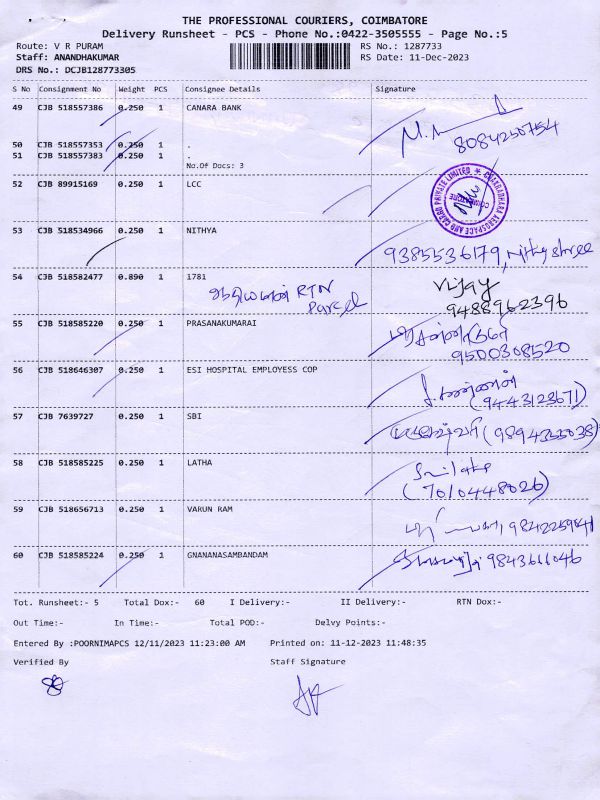 THE PROFESSIONAL COURIERS, COIMBATORE
Delivery Runsheet - PCS - Phone No.:0422-3505555 - Page No.:5
Route: V R PURAM RS No.: 1287733
Staff: ANANDHAKUMAR RS Date: 11-Dec-2023
DRS No.: DCJB128773305
S No Consignment No Weight PCS Consignee Details Signature
49 CJB 518557386 0.250 1 CANARA BANK
8084250754
50 CJB 518557353 0.250 1 .
51 CJB 518557383 0.250 1 .
No.Of Docs: 3
52 CJB 89915169 0.250 1 LCC
CHAKRADHARA AEROSPACE AND CARGO PRIVATE LIMITED ★ COIMBATORE
53 CJB 518534966 0.250 1 NITHYA
9385536179, Nithyshree
54 CJB 518582477 0.890 1 1781 Vijay
RTN Parcel 9488962396
55 CJB 518585220 0.250 1 PRASANAKUMARAI
9500308520
56 CJB 518646307 0.250 1 ESI HOSPITAL EMPLOYESS COP
(9443123671)
57 CJB 7639727 0.250 1 SBI (9894355038)
58 CJB 518585225 0.250 1 LATHA
(7010448026)
59 CJB 518656713 0.250 1 VARUN RAM
9842259841
60 CJB 518585224 0.250 1 GNANANASAMBANDAM 9843611046
Tot. Runsheet:- 5 Total Dox:- 60 I Delivery:- II Delivery:- RTN Dox:-
Out Time:- In Time:- Total POD:- Delvy Points:-
Entered By :POORNIMAPCS 12/11/2023 11:23:00 AM Printed on: 11-12-2023 11:48:35
Verified By Staff Signature